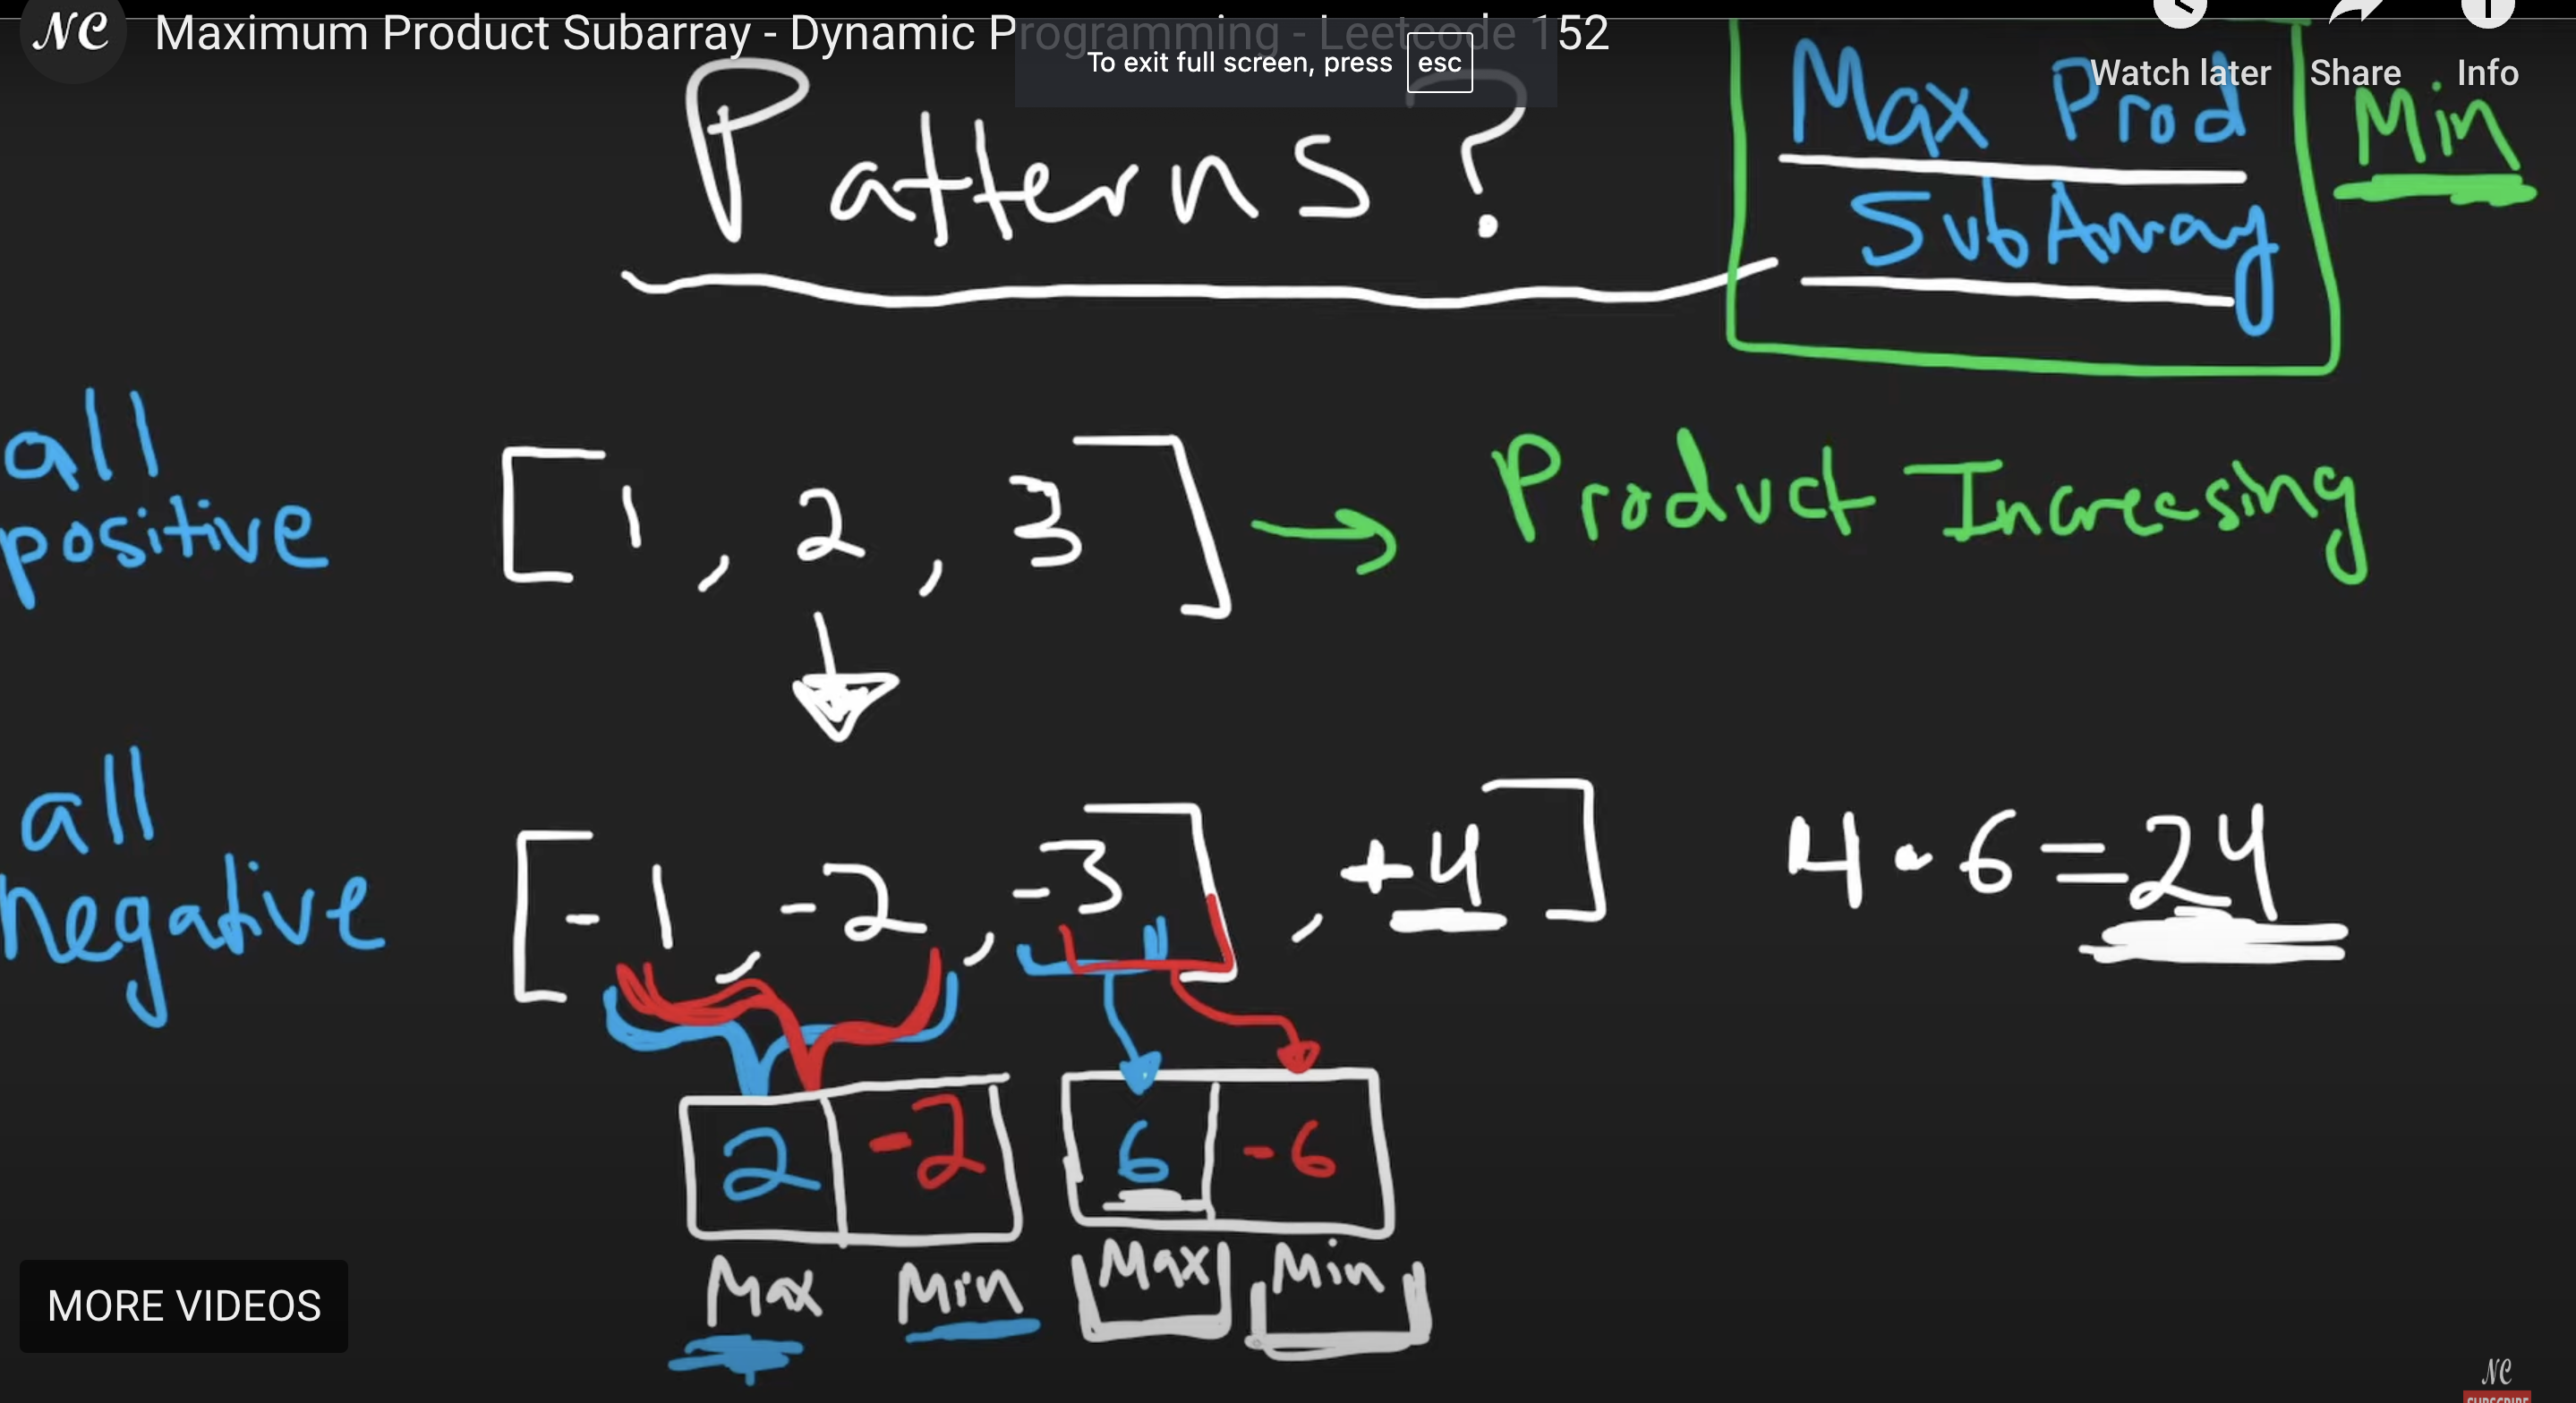 NC Maximum Product Subarray - Dynamic Programming - Leetcode 152
To exit full screen, press esc
Watch later Share Info
Patterns?
Max Prod
SubArray
Min
all
positive
[1, 2, 3] → Product Increasing
all
negative
[-1, -2, -3], +4] 4·6=24
2 -2 6 -6
Max Min Max Min
MORE VIDEOS
NC
SUBSCRIBE